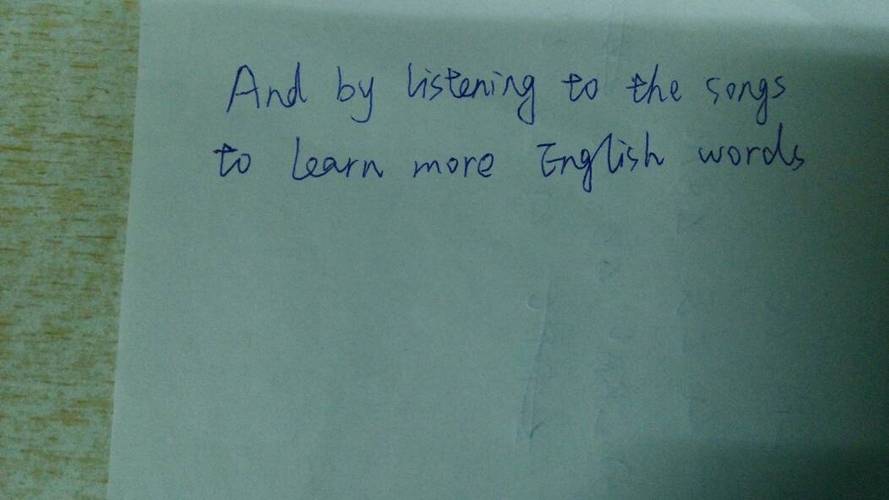 And by listening to the songs
to learn more English words